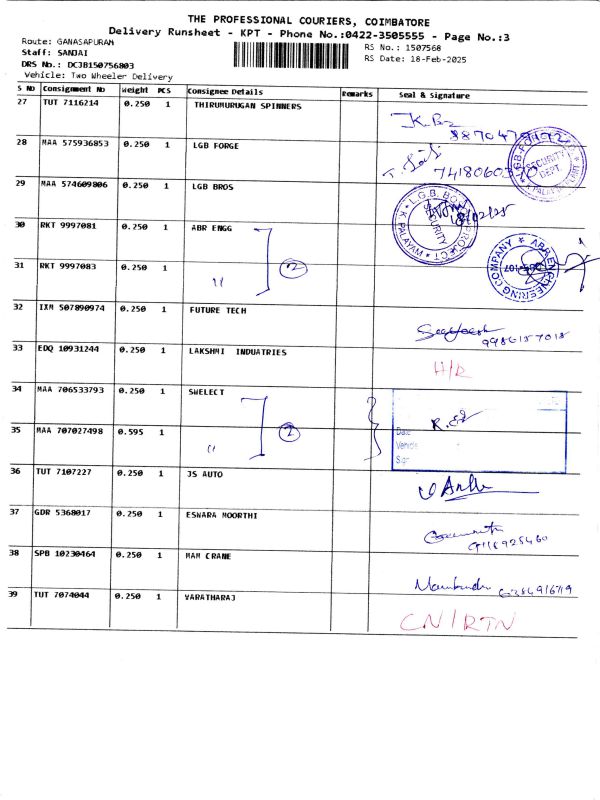 THE PROFESSIONAL COURIERS, COIMBATORE
Delivery Runsheet - KPT - Phone No.:0422-3505555 - Page No.:3
Route: GANASAPURAM
RS No.: 1507568
Staff: SANJAI
RS Date: 18-Feb-2025
DRS No.: DCJB150756803
Vehicle: Two Wheeler Delivery
S NO Consignment No Weight PCS Consignee Details Remarks Seal & signature
27 TUT 7116214 0.250 1 THIRUMURUGAN SPINNERS
28 MAA 575936853 0.250 1 LGB FORGE
7418060370
29 MAA 574609806 0.250 1 LGB BROS
18/02/25
30 RKT 9997081 0.250 1 ABR ENGG
31 RKT 9997083 0.250 1 " 2
32 IXM 507890974 0.250 1 FUTURE TECH
9986157018
33 EDQ 10931244 0.250 1 LAKSHMI INDUATRIES H/R
34 MAA 706533793 0.250 1 SWELECT
35 MAA 707027498 0.595 1 " 2
Date
Vehicle
Sign
36 TUT 7107227 0.250 1 JS AUTO
37 GDR 5368017 0.250 1 ESWARA MOORTHI
9118925460
38 SPB 10230464 0.250 1 MAM CRANE
39 TUT 7074044 0.250 1 VARATHARAJ CN/RTN